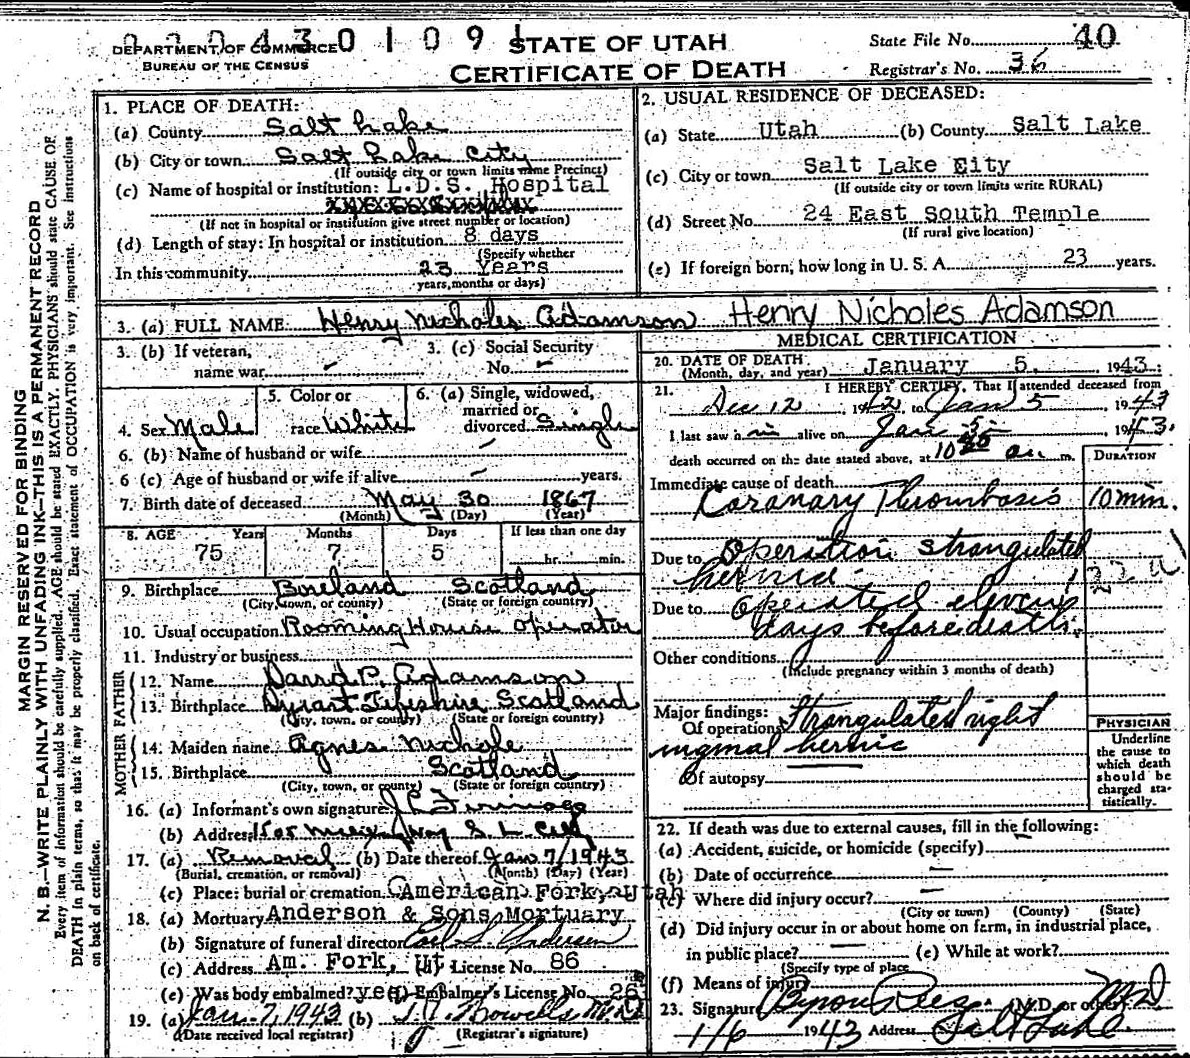 DEPARTMENT OF COMMERCE
BUREAU OF THE CENSUS
STATE OF UTAH
CERTIFICATE OF DEATH
State File No. 40
Registrar's No. 36
MARGIN RESERVED FOR BINDING
N. B.—WRITE PLAINLY WITH UNFADING INK—THIS IS A PERMANENT RECORD
Every item of information should be carefully supplied. AGE should be stated EXACTLY. PHYSICIANS should state CAUSE OF
DEATH in plain terms, so that it may be properly classified. Exact statement of OCCUPATION is very important. See instructions
on back of certificate.
1. PLACE OF DEATH:
(a) County Salt Lake
(b) City or town Salt Lake City
(If outside city or town limits name Precinct)
(c) Name of hospital or institution: L.D.S. Hospital
(If not in hospital or institution give street number or location)
(d) Length of stay: In hospital or institution 8 days
(Specify whether
In this community 23 Years
years, months or days)
2. USUAL RESIDENCE OF DECEASED:
(a) State Utah (b) County Salt Lake
(c) City or town Salt Lake Eity
(If outside city or town limits write RURAL)
(d) Street No. 24 East South Temple
(If rural give location)
(e) If foreign born, how long in U. S. A. 23 years.
3. (a) FULL NAME Henry Nicholes Adamson Henry Nicholes Adamson
3. (b) If veteran,
name war -
3. (c) Social Security
No. -
4. Sex Male
5. Color or
race White
6. (a) Single, widowed,
married or
divorced Single
6. (b) Name of husband or wife -
6 (c) Age of husband or wife if alive - years.
7. Birth date of deceased May 30 1867
(Month) (Day) (Year)
8. AGE Years Months Days If less than one day
75 7 5 hr. min.
9. Birthplace Boreland Scotland
(City, town, or county) (State or foreign country)
10. Usual occupation Rooming House operator
11. Industry or business
FATHER
12. Name David P. Adamson
13. Birthplace Scotland
(City, town, or county) (State or foreign country)
MOTHER
14. Maiden name Agnes Nichole
15. Birthplace Scotland
(City, town, or county) (State or foreign country)
16. (a) Informant's own signature
(b) Address
17. (a) Removal (b) Date thereof Jan 7, 1943
(Burial, cremation, or removal) (Month) (Day) (Year)
(c) Place: burial or cremation American Fork, Utah
18. (a) Mortuary Anderson & Sons Mortuary
(b) Signature of funeral director Anderson
(c) Address Am. Fork, Ut (d) License No. 86
(e) Was body embalmed? yes (f) Embalmer's License No. 26
19. (a) Jan. 7, 1943 (b)
(Date received local registrar) (Registrar's signature)
MEDICAL CERTIFICATION
20. DATE OF DEATH January 5, 1943.
(Month, day, and year)
21. I HEREBY CERTIFY, That I attended deceased from
Dec 12 1942, to Jan 5 1943
I last saw him alive on Jan 5 1943.
death occurred on the date stated above, at 10 a. m.
DURATION
Immediate cause of death
Coranary Thrombosis 10 min.
Due to Operation strangulated
hernia.
Due to Operated eleven
days before death.
Other conditions
(Include pregnancy within 3 months of death)
Major findings:
Of operations Strangulated right
inginal hernia
Of autopsy
PHYSICIAN
Underline
the cause to
which death
should be
charged sta-
tistically.
22. If death was due to external causes, fill in the following:
(a) Accident, suicide, or homicide (specify) —
(b) Date of occurrence —
(c) Where did injury occur? —
(City or town) (County) (State)
(d) Did injury occur in or about home on farm, in industrial place,
in public place? — (e) While at work?
(Specify type of place
(f) Means of injury
23. Signature Byron Rees (M.D. or other) MD
1/6 1943 Address Salt Lake